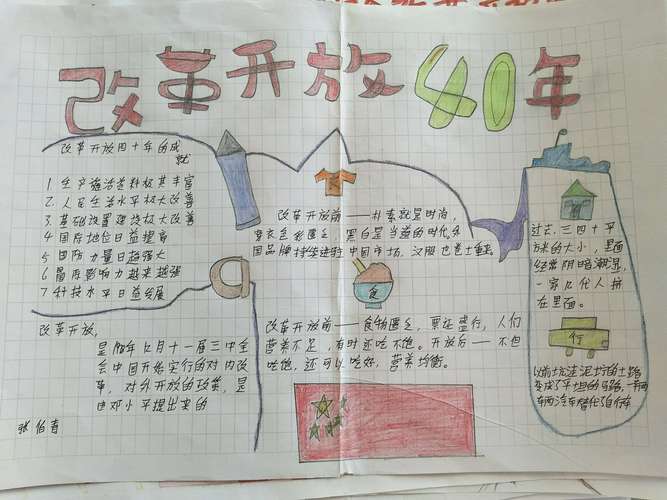 改革开放40年
改革开放四十年的成
就
1生产强活资料极其丰富
2人民生活水平极大改善
3基础设置建设极大改善
4国际地位日益提高
5国防力量日趋强大
6国际影响力越来越强
7科技水平日益发展
改革开放前——朴素就是时尚,
穿衣色彩匮乏,黑白是当道的时代名
国品牌持续进驻中国市场,汉服也卷土重来
食
改革开放前——食物匮乏,票证盛行,人们
营养不足,有时还吃不饱。开放后——不但
吃饱,还可以吃好,营养均衡。
衣
过去,三四十平
方米的大小,里面
经常阴暗潮湿,
一家几代人挤
在里面。
行
以前坑洼泥土的土路
变成了平坦的马路,一辆
辆汽车替代了自行车
改革开放,
是1978年12月十一届三中全
会中国开始实行的对内改
革,对外开放的政策,是
由邓小平提出来的
张伯青